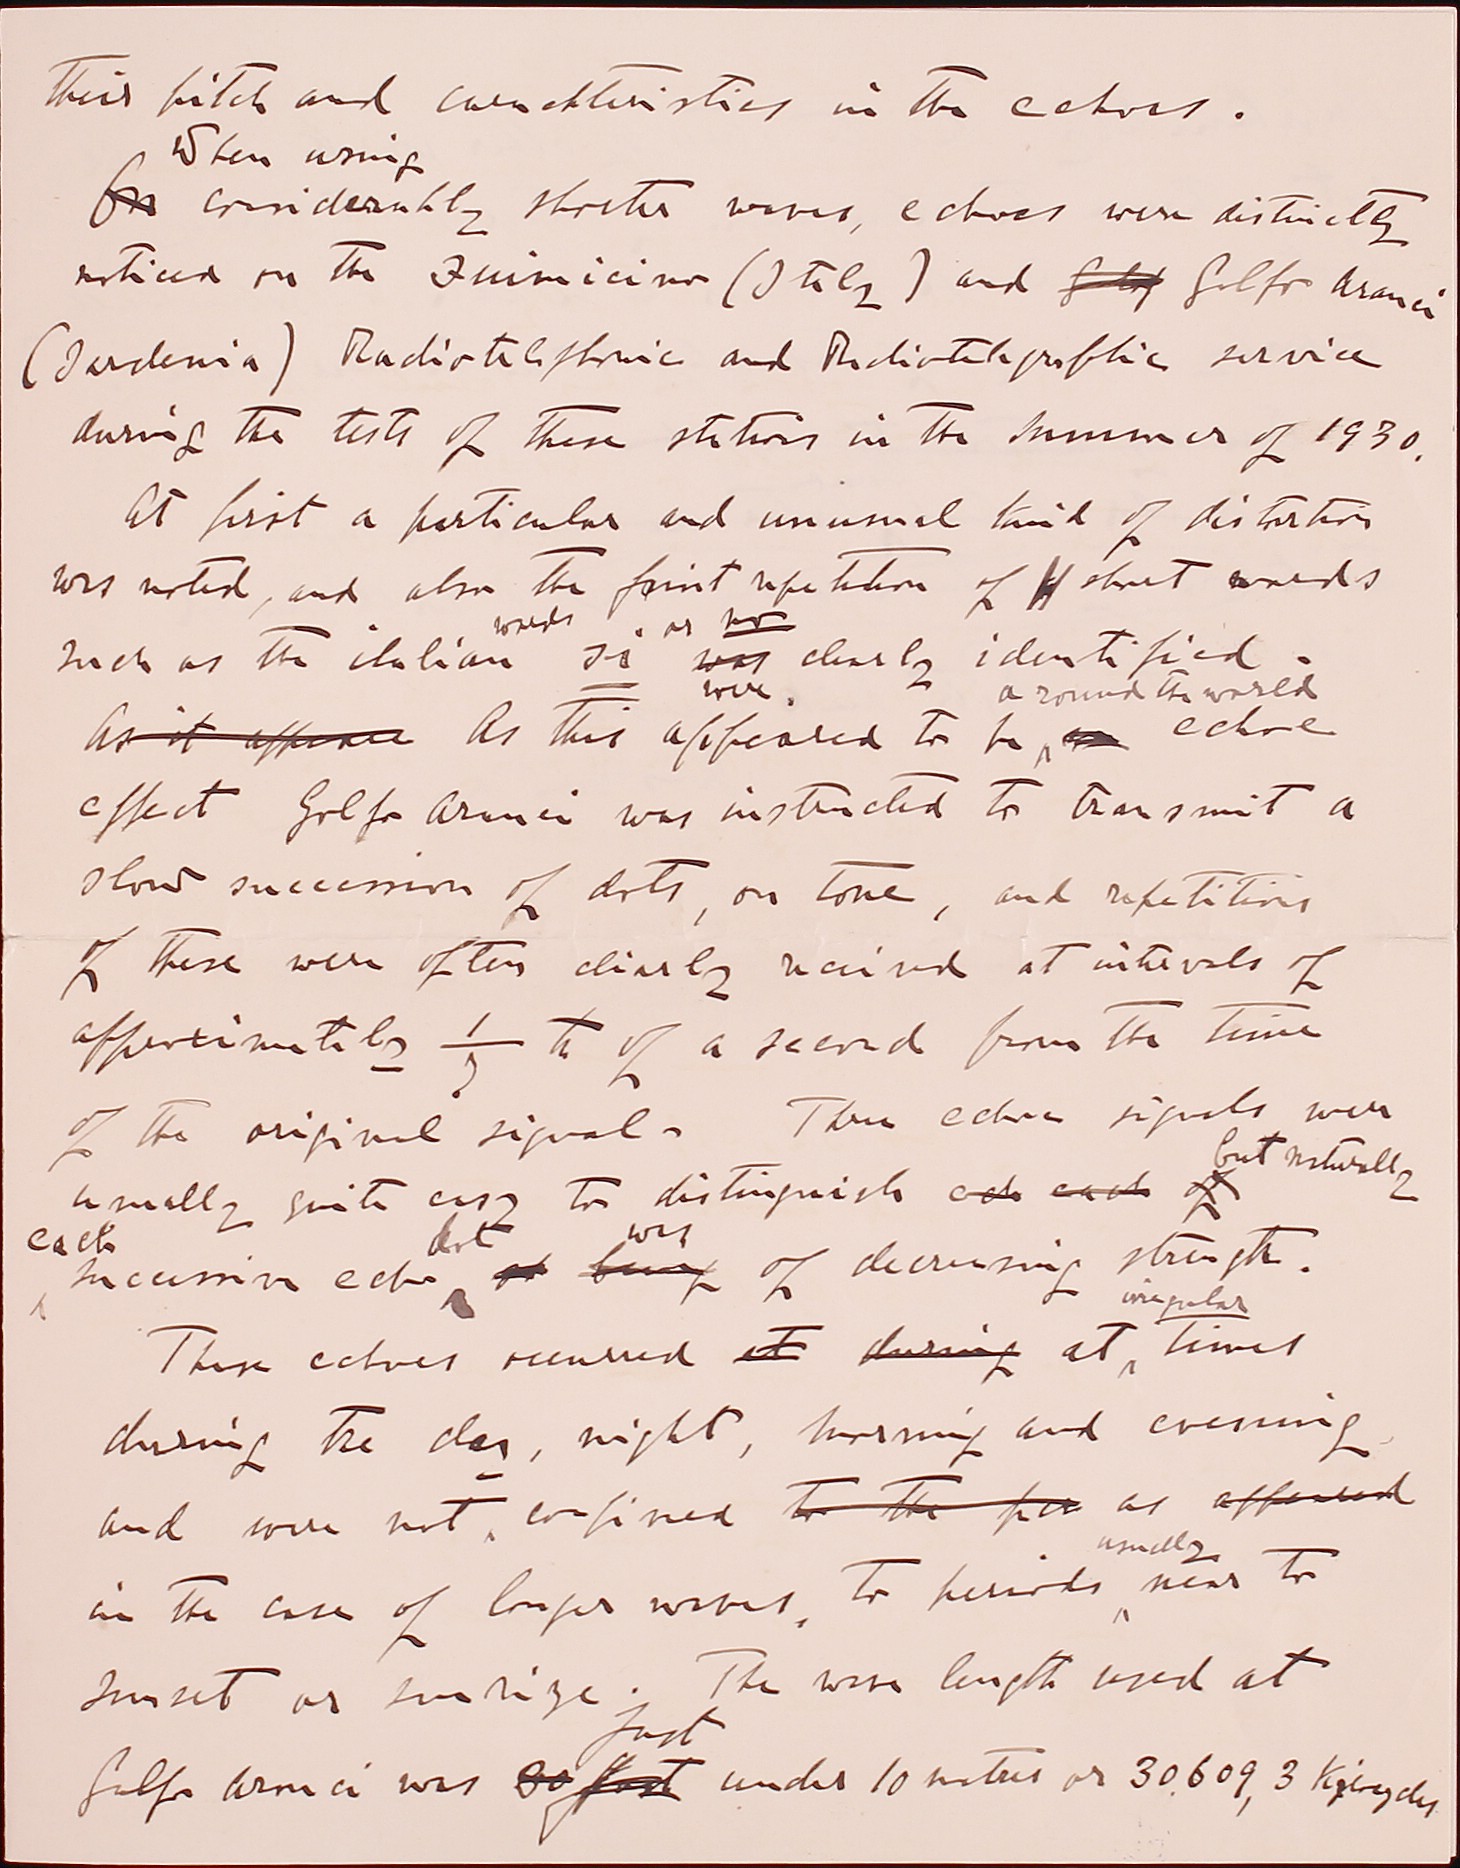 their pitch and carachteristics in the echoes.
When using
On considerably shorter waves, echoes were distinctly
noticed on the Fiumicino (Italy) and Golfo Aranci
(Sardenia) Radiotelephonic and Radiotelegraphic service
during the tests of these stations in the summer of 1930.
At first a particular and unusual kind of distortion
was noted, and also the faint repetition of short words
words or no
such as the italian si was clearly identified.
were. around the world
As it appeared As this appeared to be an echoe
effect Golfo Aranci was instructed to transmit a
slow succession of dots, on tone, and repetitions
of these were often clearly received at intervals of
approximately 1/7 th of a second from the time
of the original signal. These echoe signals were
but naturally
usually quite easy to distinguish ech each of
each dot was
successive echo or being of decreasing strength.
irregular
These echoes occurred at during at times
during the day, night, morning and evening
and were not confined to the per as appeared
usually
in the case of longer waves, to periods near to
sunset or sunrize. The wave length used at
just
Golfo Aranci was so just under 10 metres or 30.609,3 Kylocycles